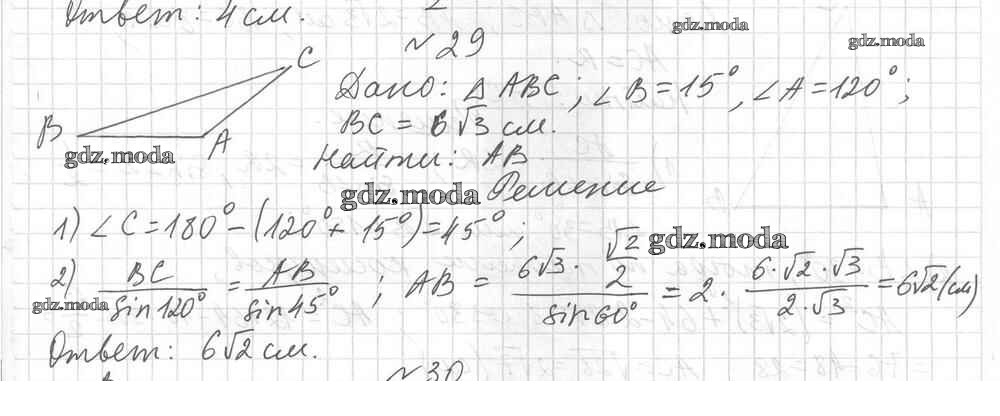 Ответ: 4 см.
gdz.moda
gdz.moda
№ 29
B C A
gdz.moda
Дано: △ ABC; ∠B = 15°, ∠A = 120°;
BC = 6√3 см.
Найти: AB
gdz.moda
Решение
1) ∠C = 180° − (120° + 15°) = 45°;
gdz.moda
2) BC/sin 120° = AB/sin 45°; AB = (6√3 · √2/2)/sin 60° = 2 · (6 · √2 · √3)/(2 · √3) = 6√2 (см)
gdz.moda
Ответ: 6√2 см.
№ 30